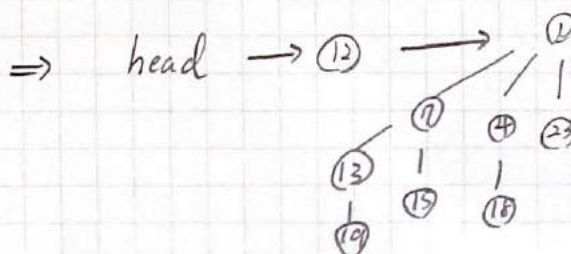 ⇒ head → 12 → 1
7 4 23
13 15 18
19